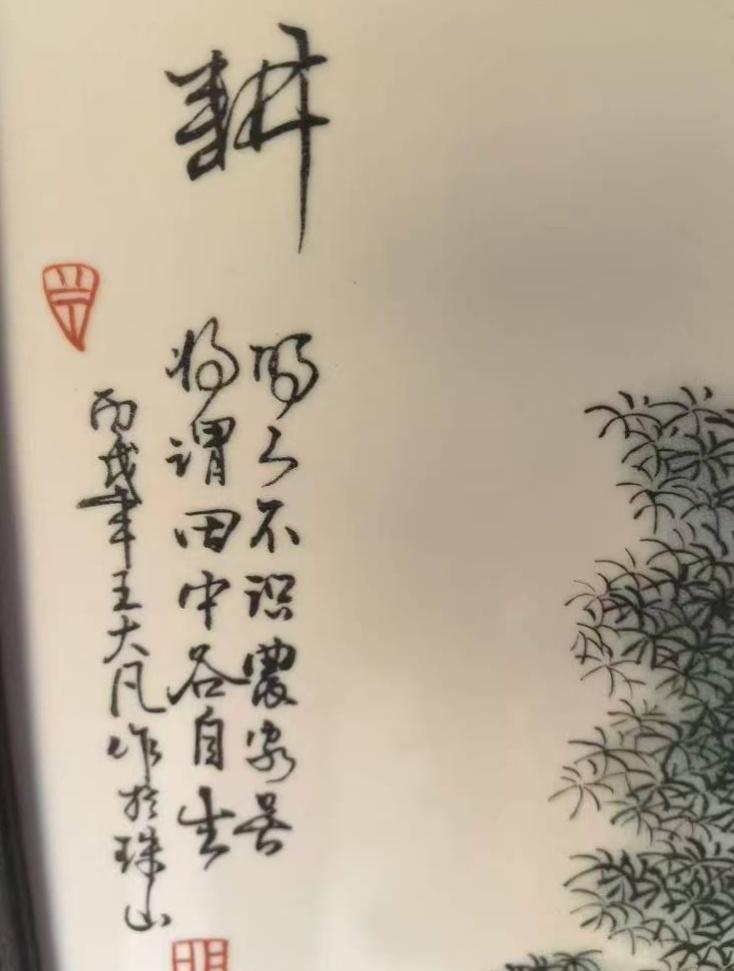 耕
時人不识農家苦
将谓田中谷自生
丙戌年王大凡作於珠山